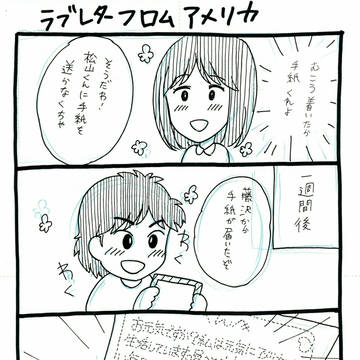 ラブレターフロムアメリカ
むこう着いたか
手紙くれよ
そうだわ!
松山くんに手紙を
送かなくちゃ
一週間後
藤沢から
手紙が届いたぞ
わく
わく
お元気ですか?私は元気に
生活しています